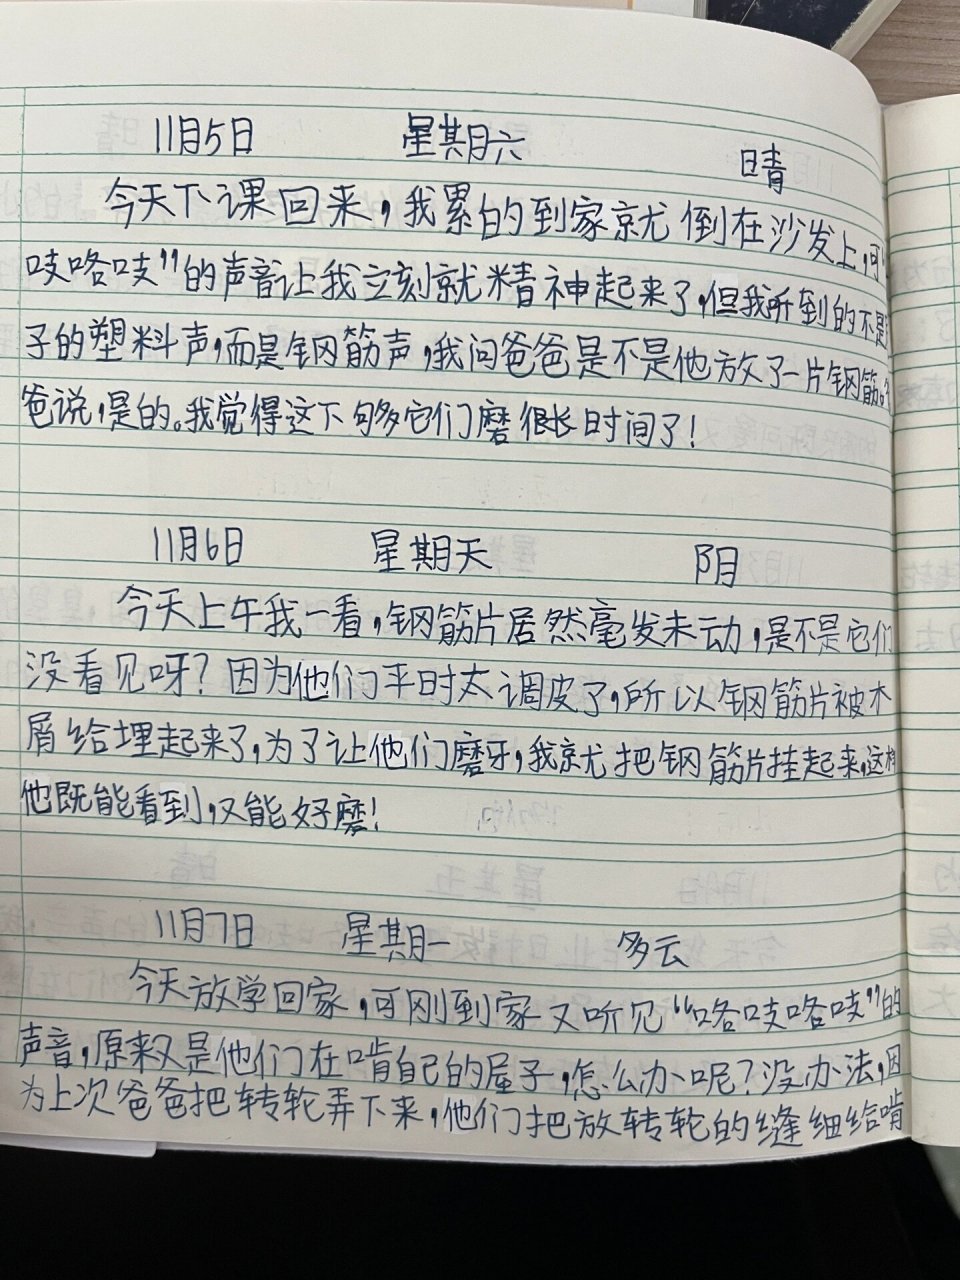 11月5日 星期六 晴
今天下课回来，我累的到家就倒在沙发上，可
吱咯吱”的声音让我立刻就精神起来了，但我听到的不是
子的塑料声，而是钢筋声，我问爸爸是不是他放了一片钢筋。
爸说，是的。我觉得这下够它们磨很长时间了！
11月6日 星期天 阴
今天上午我一看，钢筋片居然毫发未动，是不是它们
没看见呀？因为他们平时太调皮了，所以钢筋片被木
屑给埋起来了，为了让他们磨牙，我就把钢筋片挂起来，这样
他既能看到，又能好磨！
11月7日 星期一 多云
今天放学回家，可刚到家又听见“咯吱咯吱”的
声音，原来又是他们在啃自己的屋子，怎么办呢？没办法，因
为上次爸爸把转轮弄下来，他们把放转轮的缝细给啃